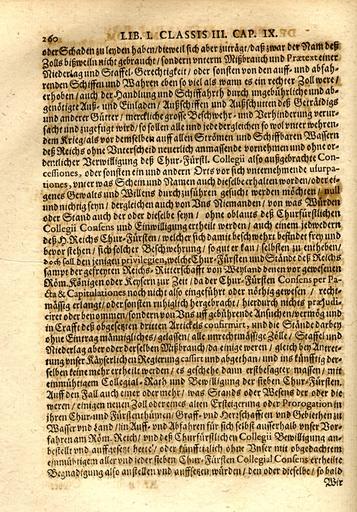 260 LIB. I. CLASSIS III. CAP. IX.
oder Schaden zu leyden haben/dieweil sich aber zuträgt/daß zwar der Nam deß
Zolls bißweiln nicht gebraucht/sondern vnterm Mißbrauch vnd Prætext einer
Niederlag vnd Staffel-Gerechtigkeit/ oder sonsten von den auff- vnd abfah-
renden Schiffen vnd Wahren eben so viel als wann es ein rechter Zoll were/
erhoben/auch der Handlung vnd Schiffahrt durch vngebührliche vnd ab-
genötigte Auß- vnd Einladen/ Außschiffen vnd Außschütten deß Geträidigs
vnd anderer Gütter/ merckliche grosse Beschwehr- vnd Verhinderung verur-
sacht vnd zugefügt wird/so sollen alle vnd jede dergleichen so wol vnter wehren-
dem Krieg/als vor demselben auff allen Strömen vnd Schiffbaren Wassern
deß Reichs ohne Vnterscheid neuerlich anmassende vornehmen vnd ohne or-
dentlicher Verwilligung deß Chur-Fürstl. Collegii also außgebrachte Con-
cessiones, oder sonsten ein vnd andern Orts vor sich vnternehmende usurpa-
tiones, vnter was Schein vnd Namen auch dieselbe erhalten worden/oder ei-
genes Gewalts vnd Willens durchzuführen gesucht werden möchten/ null
vnd nichtig seyn/ dergleichen auch von Vns Niemanden/ von was Würden
oder Stand auch der oder dieselbe seyn/ ohne oblauts deß Churfürstlichen
Collegii Consens vnd Einwilligung ertheilt werden/ auch einem jedwedern
deß H. Reichs Chur-Fürsten/welcher sich damit beschwehrt befindet frey vnd
bevor stehen/ sich solcher Beschwehrung/ so gut er kan/ selbsten zu entheben/
doch soll den jenigen privilegien, welche Chur-Fürsten vnd Stände deß Reichs
sampt der gefreyten Reichs-Ritterschafft von Weyland denen vor gewesenen
Röm. Königen oder Keysern zur Zeit/ da der Chur-Fürsten Consens per Pa-
cta & Capitulationes noch nicht also eingeführt oder nöthig gewesen/ recht-
mässig erlangt/ oder sonsten ruhiglich hergebracht/ hierdurch nichts præjudi-
cirt oder benommen/sondern von Vns uff gebührende Ansuchen/vermög vnd
in Crafft deß obgesetzten dritten Artickels confirmirt, vnd die Stände darbey
ohne Eintrag männigliches/ gelassen/ alle vnrechtmässige Zölle/ Staffel vnd
Niederlag aber oder derselben Mißbrauch/da einige weren/ gleich bey Antret-
tung vnser Käyserlichen Regierung cassirt vnd abgethan/ vnd ins künfftig der-
selben keine mehr ertheilt werden/ es geschehe dann erstbesagter massen/ mit
einmühtigem Collegial-Rath vnd Bewilligung der sieben Chur-Fürsten.
Auff den Fall auch einer oder mehr/ was Stands oder Wesens der oder die
weren/ einigen neuen Zoll oder eines alten Ersteigerung oder Prorogation in
ihren Chur-vnd Fürstenthümen/ Graff- vnd Herrschafften vnd Gebiethen zu
Wasser vnd Land/ im Auff- vnd Abfahren für sich selbst ausserhalb vnser Vor-
fahren am Röm. Reich/ vnd deß Churfürstlichen Collegii Bewilligung an-
bestellt vnd auffgesetzt hette/ oder künfftiglich ohn Vnser mit obgedachtem
einmühtigem aller vnd jeder sieben Chur-Fürsten Collegial Consens ertheilte
Begnadigung also anstellen vnd auffsetzen würden/ den oder dieselbe/ so bald
Wir